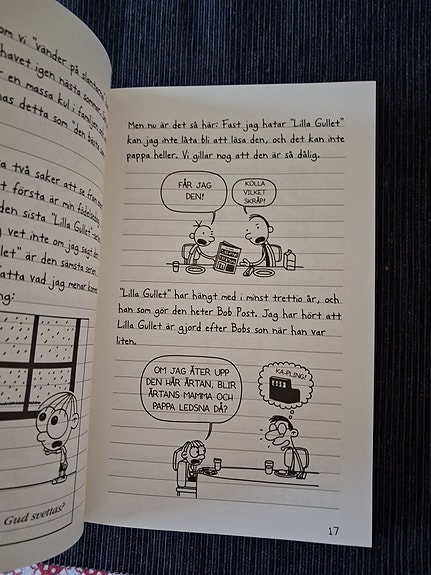 om vi "vänder på
havet igen nästa sommar
r en massa kul i familjen
nas detta som den bästa
a två saker att se fram
t första är min födelsedag
den sista "Lilla Gullet"
vet inte om jag sagt det
let" är den sämsta serien
fatta vad jag menar
ng:
Gud svettas?
Men nu är det så här: Fast jag hatar "Lilla Gullet"
kan jag inte låta bli att läsa den, och det kan inte
pappa heller. Vi gillar nog att den är så dålig.
FÅR JAG
DEN?
KOLLA
VILKET
SKRÄP!
"Lilla Gullet" har hängt med i minst trettio år, och
han som gör den heter Bob Post. Jag har hört att
Lilla Gullet är gjord efter Bobs son när han var
liten.
OM JAG ÄTER UPP
DEN HÄR ÄRTAN, BLIR
ÄRTANS MAMMA OCH
PAPPA LEDSNA DÅ?
KA-PLING!
17